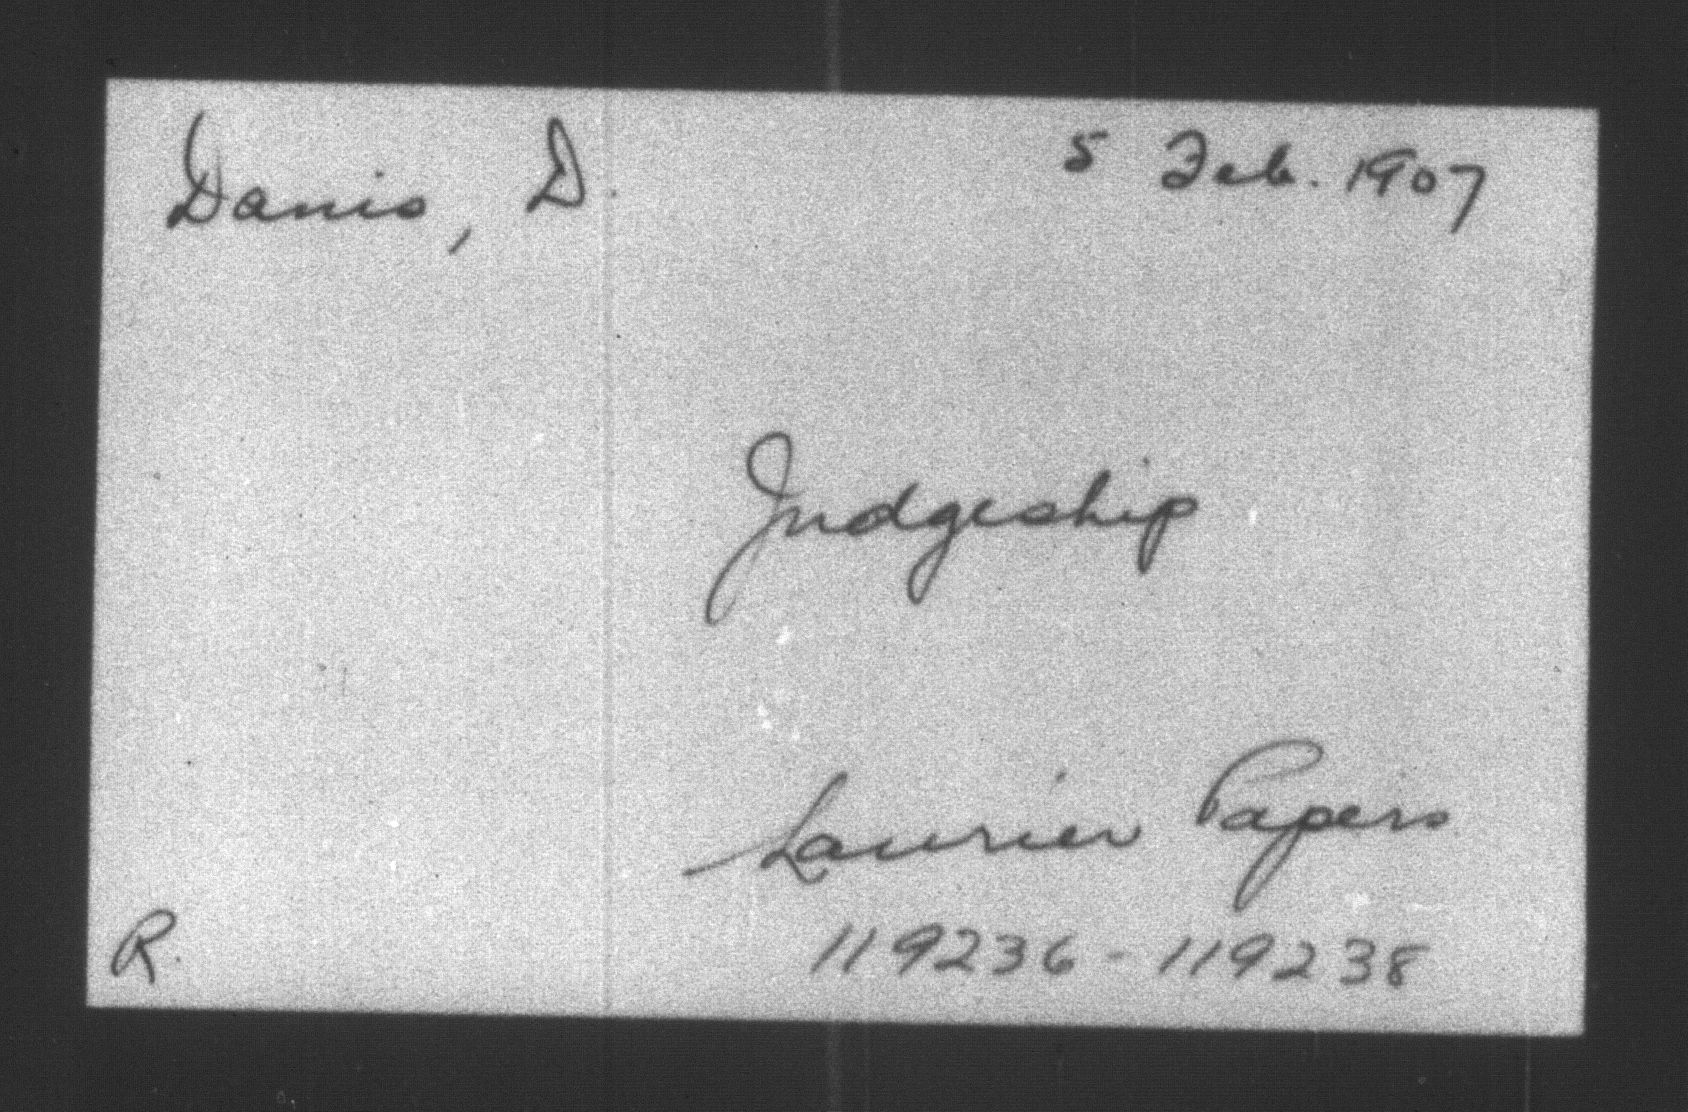 Danis, D. 5 Feb. 1907
Judgeship
Laurier Papers
119236-119238
R.